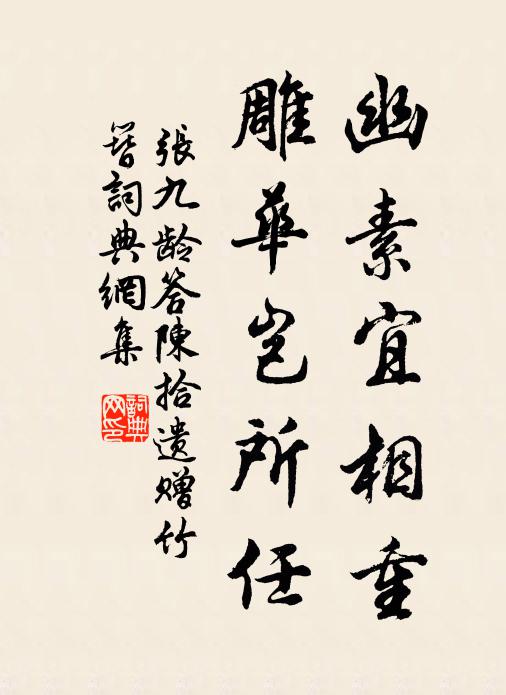 幽素宜相重
雕華豈所任
張九龄答陳拾遺贈竹
簪詞典網集
詞典
网印